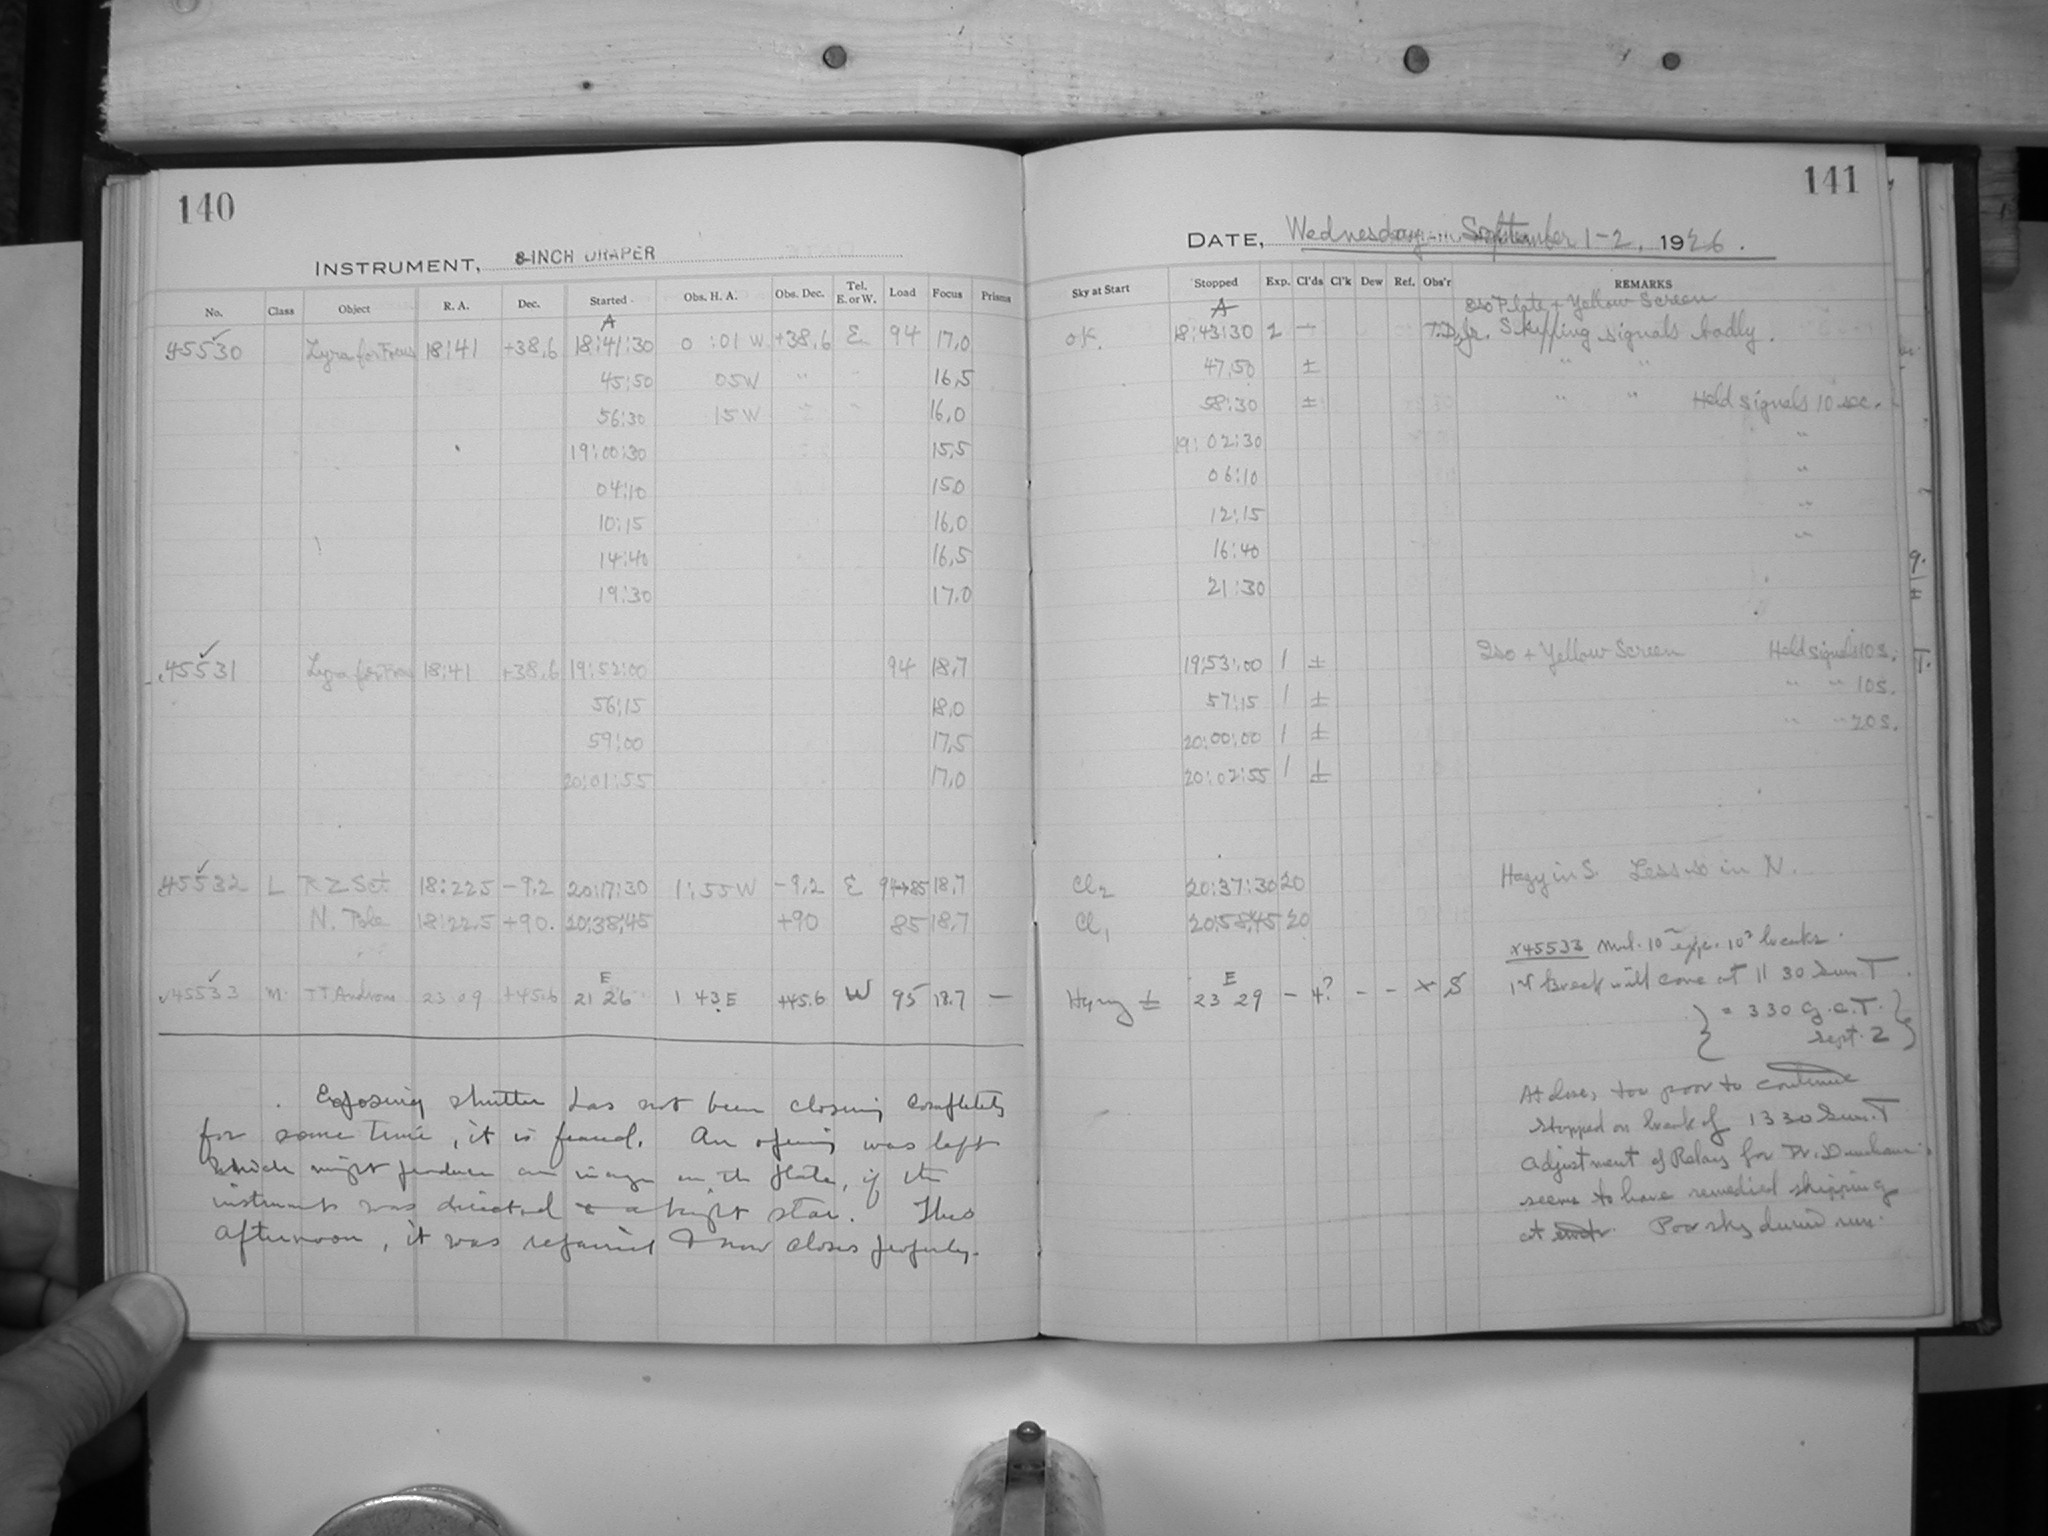 140
INSTRUMENT, 8-INCH DRAPER
No. Class Object R. A. Dec. Started Obs. H. A. Obs. Dec. Tel. E. or W. Load Focus Prisms
A
45530 Lyra for Focus 18:41 +38.6 18:41:30 0:01 W +38.6 E 94 17.0
45:50 05W " " 16.5
56:30 15W " " 16.0
19:00:30 15.5
04:10 15.0
10:15 16.0
14:40 16.5
19:30 17.0
45531 Lyra for Focus 18:41 +38.6 19:52:00 94 18.7
56:15 18.0
59:00 17.5
20:01:55 17.0
45532 L RZ Sct 18:22.5 -9.2 20:17:30 1:55 W -9.2 E 94→85 18.7
N. Pole 18:22.5 +90. 20:38:45 +90 85 18.7
E
45533 M TT Androm 23 09 +45.6 21 26 1 43 E +45.6 W 95 18.7 —
Exposing shutter has not been closing completely
for some time, it is feared. An opening was left
which might produce an image on the plate, if the
instrument was directed to a bright star. This
afternoon, it was repaired & now closes properly.
141
DATE, Wednesday September 1-2, 1926.
Sky at Start Stopped Exp. Cl'ds Cl'k Dew Ref. Obs'r REMARKS
Iso Plate + Yellow Screen
A
OK. 18:43:30 2 — Skipping signals badly.
47:50 ± " "
58:30 ± " " Held signals 10 sec.
19:02:30 "
06:10 "
12:15 "
16:40 "
21:30
19:53:00 1 ± Iso + Yellow Screen Held signals 10 s.
57:15 1 ± " " 10 s.
20:00:00 1 ± " " 20 s.
20:02:55 1 ±
Cl2 20:37:30 20 Hazy in S. Less so in N.
Cl1 20:58:45 20
x45533 Mul. 10m exps. 10s breaks.
E
Hazy ± 23 29 - +? - - x S 1st break will come at 11 30 Sum. T.
= 3 30 G.C.T.
Sept. 2
At close, too poor to continue
Stopped on break of 13 30 Sum. T
Adjustment of Relays for Dr. Dunham
seems to have remedied skipping
at Poor sky during run.